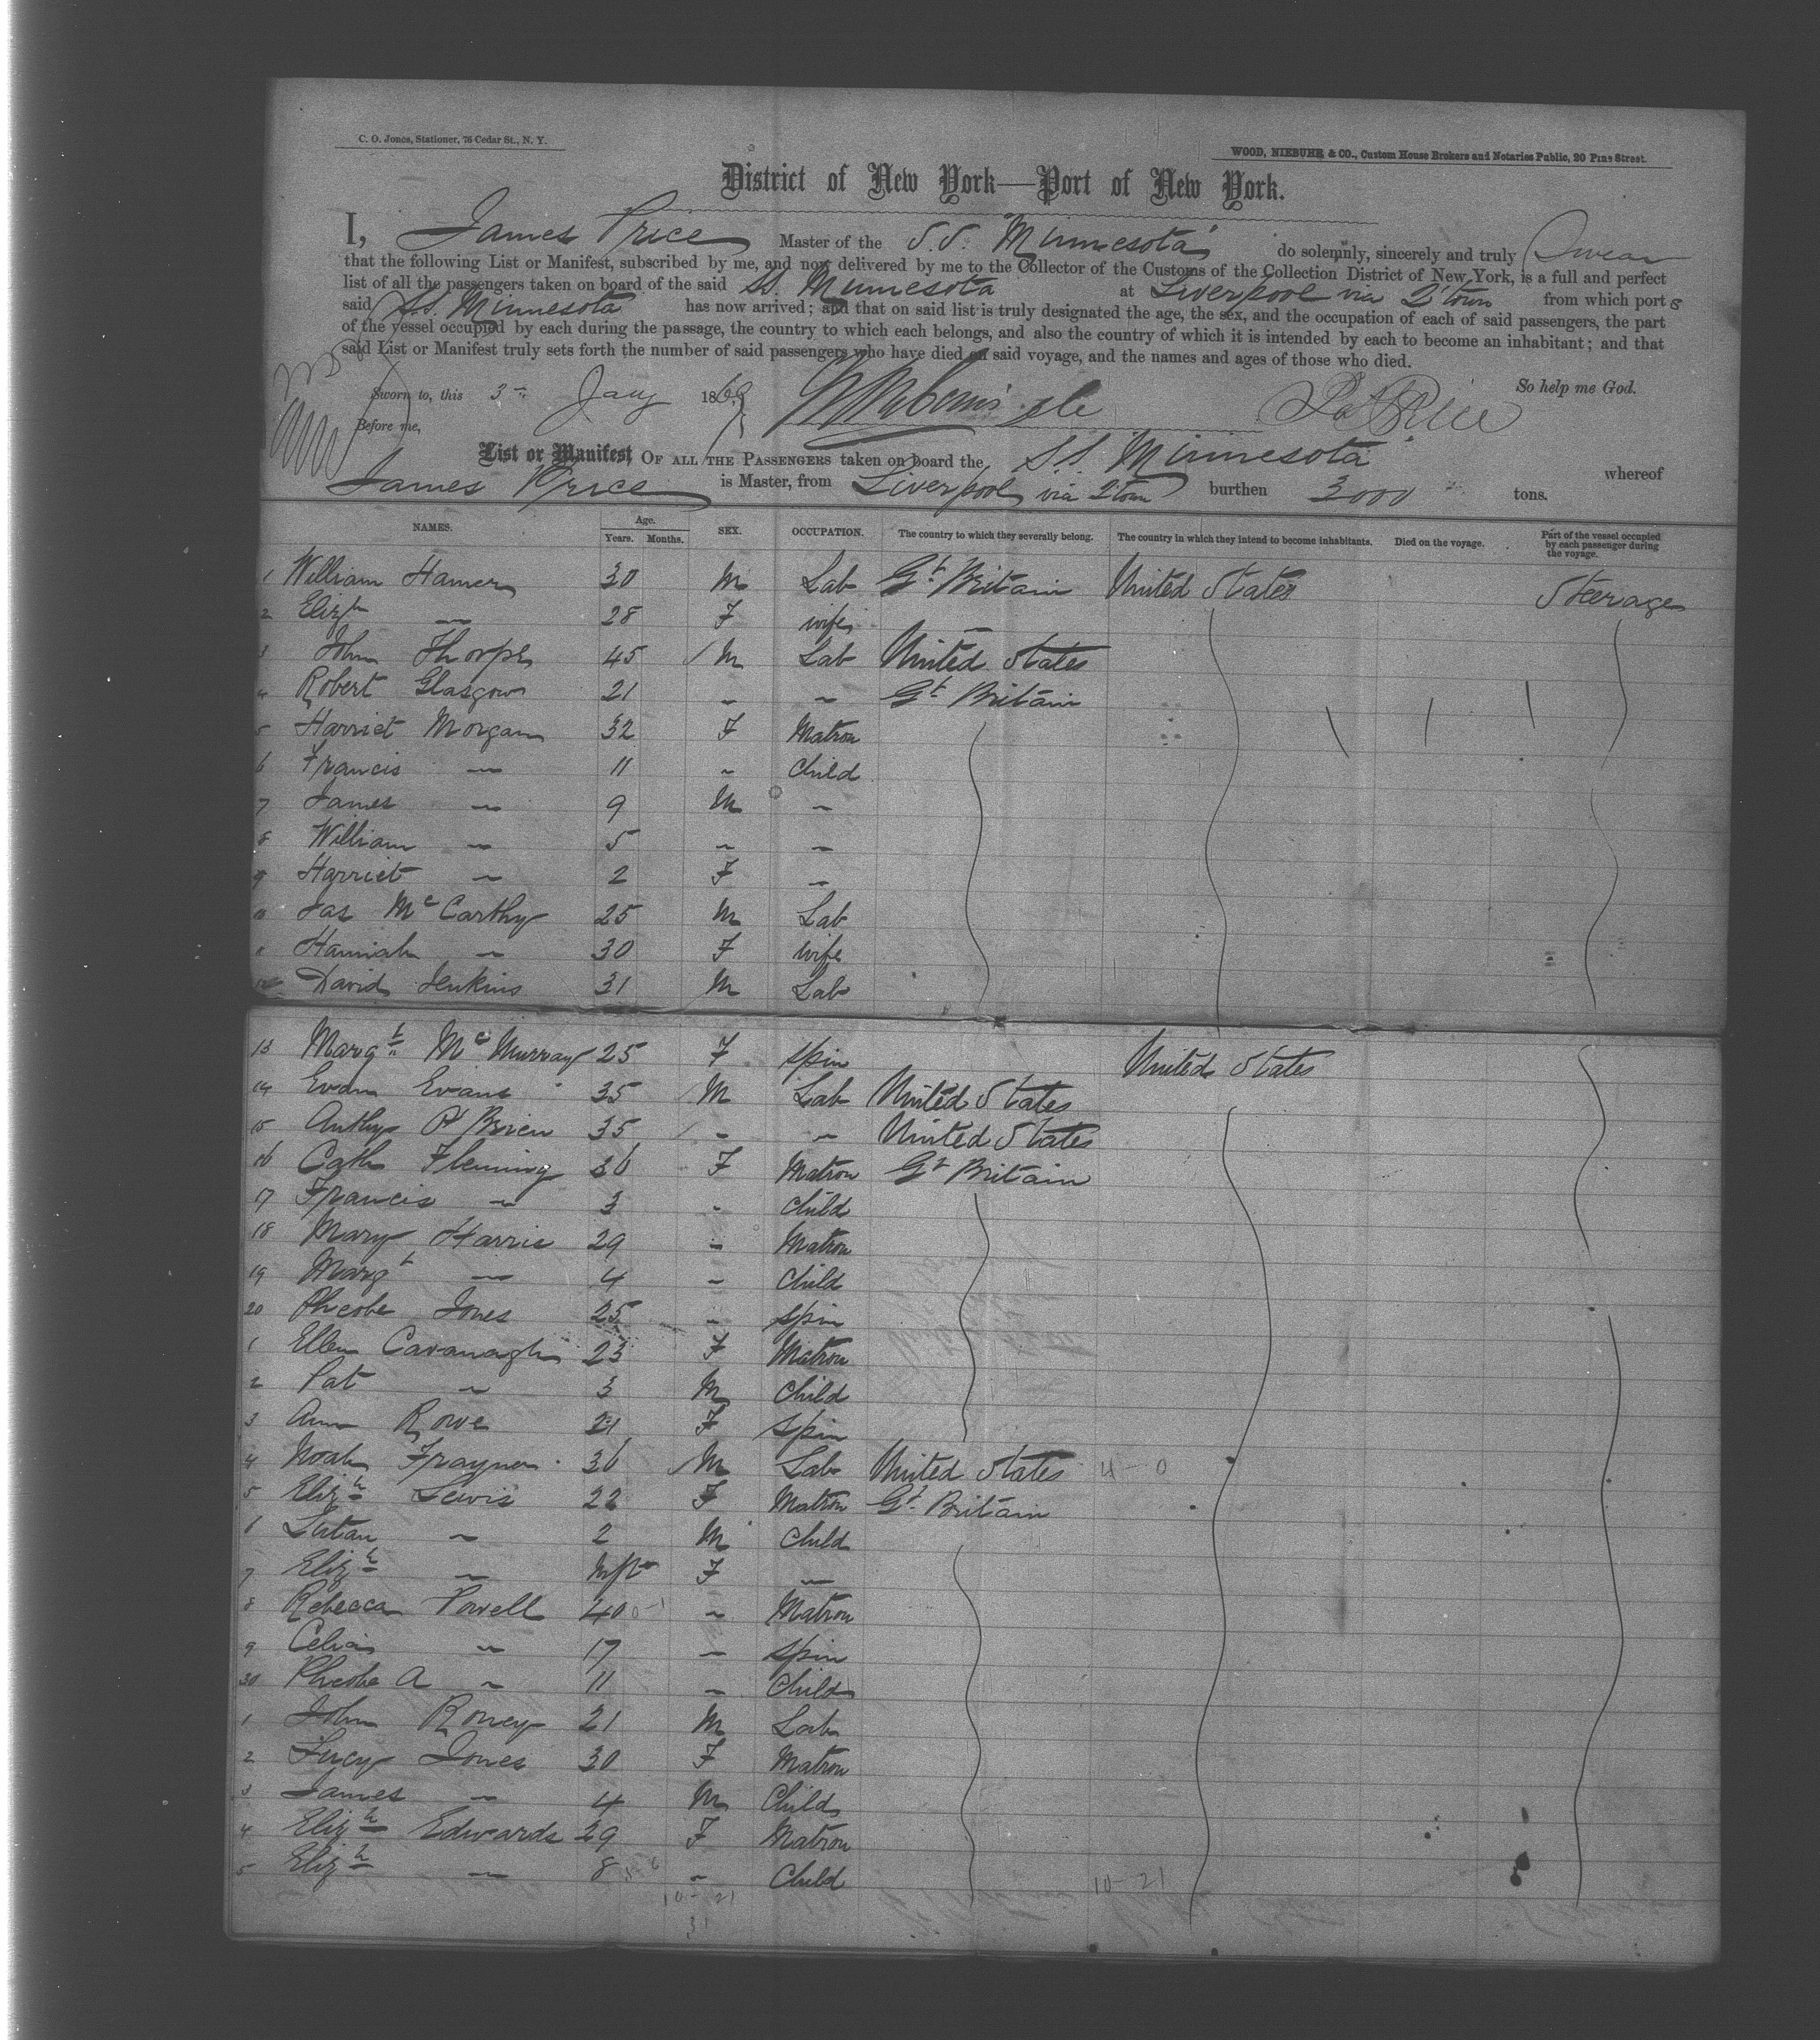 C. O. Jones, Stationer, 76 Cedar St., N. Y.
WOOD, NIEBUHR & CO., Custom House Brokers and Notaries Public, 20 Pine Street.
District of New York—Port of New York.
I, James Price Master of the S.S. "Minnesota" do solemnly, sincerely and truly Swear
that the following List or Manifest, subscribed by me, and now delivered by me to the Collector of the Customs of the Collection District of New York, is a full and perfect
list of all the passengers taken on board of the said SS. Minnesota at Liverpool via Q'town from which port s
said S.S. Minnesota has now arrived; and that on said list is truly designated the age, the sex, and the occupation of each of said passengers, the part
of the vessel occupied by each during the passage, the country to which each belongs, and also the country of which it is intended by each to become an inhabitant; and that
said List or Manifest truly sets forth the number of said passengers who have died on said voyage, and the names and ages of those who died.
So help me God.
Sworn to, this 3 Jany 1869
Before me,
List or Manifest OF ALL THE PASSENGERS taken on board the S.S. "Minnesota" whereof
James Price is Master, from Liverpool via Q'town burthen 3000 tons.
NAMES. Age. Years. Months. SEX. OCCUPATION. The country to which they severally belong. The country in which they intend to become inhabitants. Died on the voyage. Part of the vessel occupied by each passenger during the voyage.
1 William Hamer 30 M Lab Gt Britain United States Steerage
2 Elizh " 28 F wife "
3 John Thorpe 45 M Lab United States
4 Robert Glasgow 21 " " Gt Britain
5 Harriet Morgan 32 F Matron
6 Francis " 11 " Child
7 James " 9 M "
8 William " 5 " "
9 Harriet " 2 F "
10 Jas McCarthy 25 M Lab
11 Hannah " 30 F wife
12 David Jenkins 31 M Lab
13 Margt McMurray 25 F spin United States
14 Evan Evans 35 M Lab United States
15 Anthy O'Brien 35 " " United States
16 Cath Fleming 36 F Matron Gt Britain
17 Francis " 3 " Child
18 Mary Harris 29 " Matron
19 Margt " 4 " Child
20 Phoebe Jones 25 " spin
1 Ellen Cavanagh 23 F Matron
2 Pat " 3 M Child
3 Ann Rowe 21 F Spin
4 Noah 36 M Lab United States 4-0
5 Elizh Lewis 22 F Matron Gt Britain
6 " 2 M Child
7 Elizh " Inft F "
8 Rebecca Powell 40 " Matron
9 Celia " 17 " spin
30 Phoebe A " 11 " Child
1 John Roney 21 M Lab
2 Lucy Jones 30 F Matron
3 James " 4 M Child
4 Elizh Edwards 29 F Matron
5 Elizh " 8 " Child
10-21 10-21
31